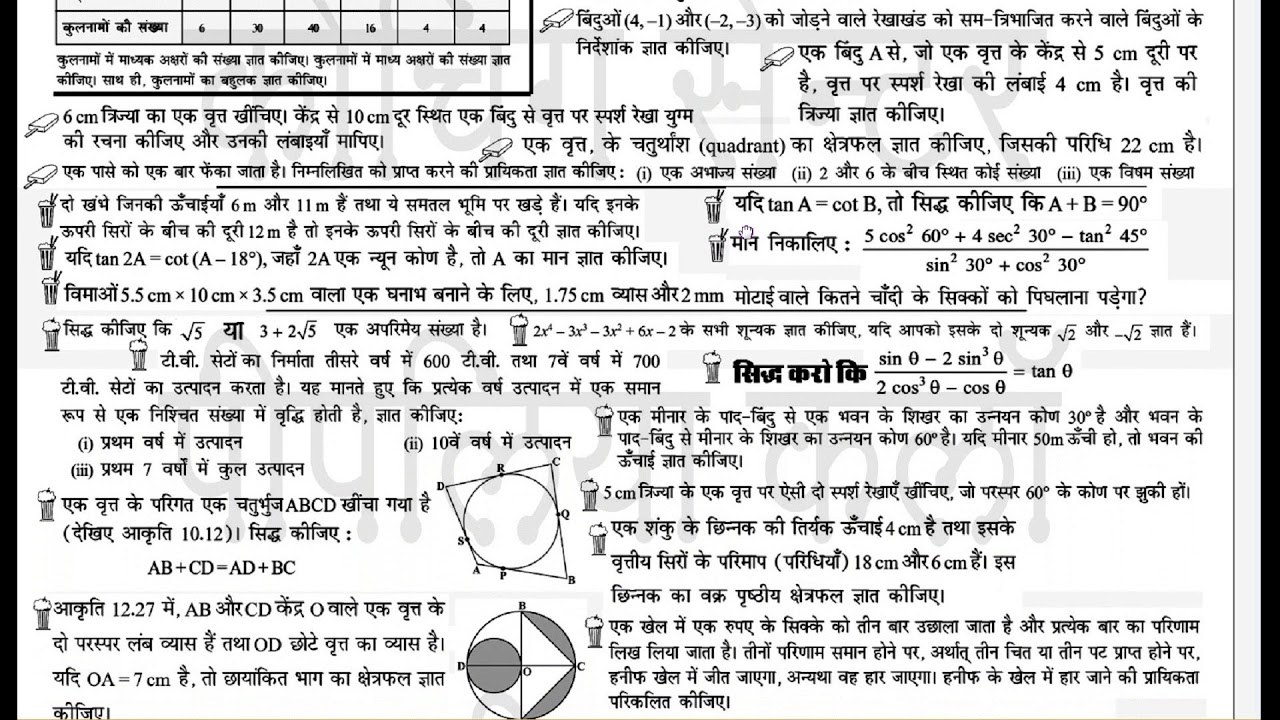 कुलनामों की संख्या 6 30 40 16 4 4
कुलनामों में माध्यक अक्षरों की संख्या ज्ञात कीजिए। कुलनामों में माध्य अक्षरों की संख्या ज्ञात
कीजिए। साथ ही, कुलनामों का बहुलक ज्ञात कीजिए।
बिंदुओं (4, –1) और (–2, –3) को जोड़ने वाले रेखाखंड को सम-त्रिभाजित करने वाले बिंदुओं के
निर्देशांक ज्ञात कीजिए।
एक बिंदु A से, जो एक वृत्त के केंद्र से 5 cm दूरी पर
है, वृत्त पर स्पर्श रेखा की लंबाई 4 cm है। वृत्त की
त्रिज्या ज्ञात कीजिए।
6 cm त्रिज्या का एक वृत्त खींचिए। केंद्र से 10 cm दूर स्थित एक बिंदु से वृत्त पर स्पर्श रेखा युग्म
की रचना कीजिए और उनकी लंबाइयाँ मापिए।
एक वृत्त, के चतुर्थांश (quadrant) का क्षेत्रफल ज्ञात कीजिए, जिसकी परिधि 22 cm है।
एक पासे को एक बार फेंका जाता है। निम्नलिखित को प्राप्त करने की प्रायिकता ज्ञात कीजिए: (i) एक अभाज्य संख्या (ii) 2 और 6 के बीच स्थित कोई संख्या (iii) एक विषम संख्या
दो खंभे जिनकी ऊँचाईयाँ 6 m और 11 m हैं तथा ये समतल भूमि पर खड़े हैं। यदि इनके
ऊपरी सिरों के बीच की दूरी 12 m है तो इनके ऊपरी सिरों के बीच की दूरी ज्ञात कीजिए।
यदि tan A = cot B, तो सिद्ध कीजिए कि A + B = 90°
यदि tan 2A = cot (A – 18°), जहाँ 2A एक न्यून कोण है, तो A का मान ज्ञात कीजिए।
मान निकालिए : (5 cos² 60° + 4 sec² 30° – tan² 45°) / (sin² 30° + cos² 30°)
विमाओं 5.5 cm × 10 cm × 3.5 cm वाला एक घनाभ बनाने के लिए, 1.75 cm व्यास और 2 mm मोटाई वाले कितने चाँदी के सिक्कों को पिघलाना पड़ेगा?
सिद्ध कीजिए कि √5 या 3 + 2√5 एक अपरिमेय संख्या है।
2x⁴ – 3x³ – 3x² + 6x – 2 के सभी शून्यक ज्ञात कीजिए, यदि आपको इसके दो शून्यक √2 और –√2 ज्ञात हैं।
टी.वी. सेटों का निर्माता तीसरे वर्ष में 600 टी.वी. तथा 7वें वर्ष में 700
टी.वी. सेटों का उत्पादन करता है। यह मानते हुए कि प्रत्येक वर्ष उत्पादन में एक समान
रूप से एक निश्चित संख्या में वृद्धि होती है, ज्ञात कीजिए:
(i) प्रथम वर्ष में उत्पादन (ii) 10वें वर्ष में उत्पादन
(iii) प्रथम 7 वर्षों में कुल उत्पादन
सिद्ध करो कि (sin θ – 2 sin³ θ) / (2 cos³ θ – cos θ) = tan θ
एक मीनार के पाद-बिंदु से एक भवन के शिखर का उन्नयन कोण 30° है और भवन के
पाद-बिंदु से मीनार के शिखर का उन्नयन कोण 60° है। यदि मीनार 50m ऊँची हो, तो भवन की
ऊँचाई ज्ञात कीजिए।
एक वृत्त के परिगत एक चतुर्भुज ABCD खींचा गया है
(देखिए आकृति 10.12)। सिद्ध कीजिए :
AB + CD = AD + BC
D R C Q S A P B
5 cm त्रिज्या के एक वृत्त पर ऐसी दो स्पर्श रेखाएँ खींचिए, जो परस्पर 60° के कोण पर झुकी हों।
एक शंकु के छिन्नक की तिर्यक ऊँचाई 4 cm है तथा इसके
वृत्तीय सिरों के परिमाप (परिधियाँ) 18 cm और 6 cm हैं। इस
छिन्नक का वक्र पृष्ठीय क्षेत्रफल ज्ञात कीजिए।
आकृति 12.27 में, AB और CD केंद्र O वाले एक वृत्त के
दो परस्पर लंब व्यास हैं तथा OD छोटे वृत्त का व्यास है।
यदि OA = 7 cm है, तो छायांकित भाग का क्षेत्रफल ज्ञात
कीजिए।
B D O C
एक खेल में एक रुपए के सिक्के को तीन बार उछाला जाता है और प्रत्येक बार का परिणाम
लिख लिया जाता है। तीनों परिणाम समान होने पर, अर्थात् तीन चित या तीन पट प्राप्त होने पर,
हनीफ खेल में जीत जाएगा, अन्यथा वह हार जाएगा। हनीफ के खेल में हार जाने की प्रायिकता
परिकलित कीजिए।
कोचिंग सेन्टर
पीपलिया कलाँ